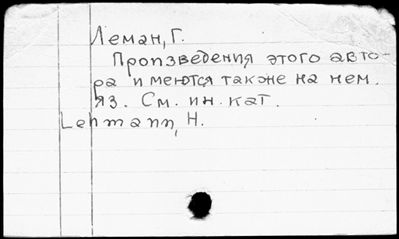 Леман, Г.
Произведения этого авто-
ра имеются также на нем.
яз. См. ин. кат.
Lehmann, H.